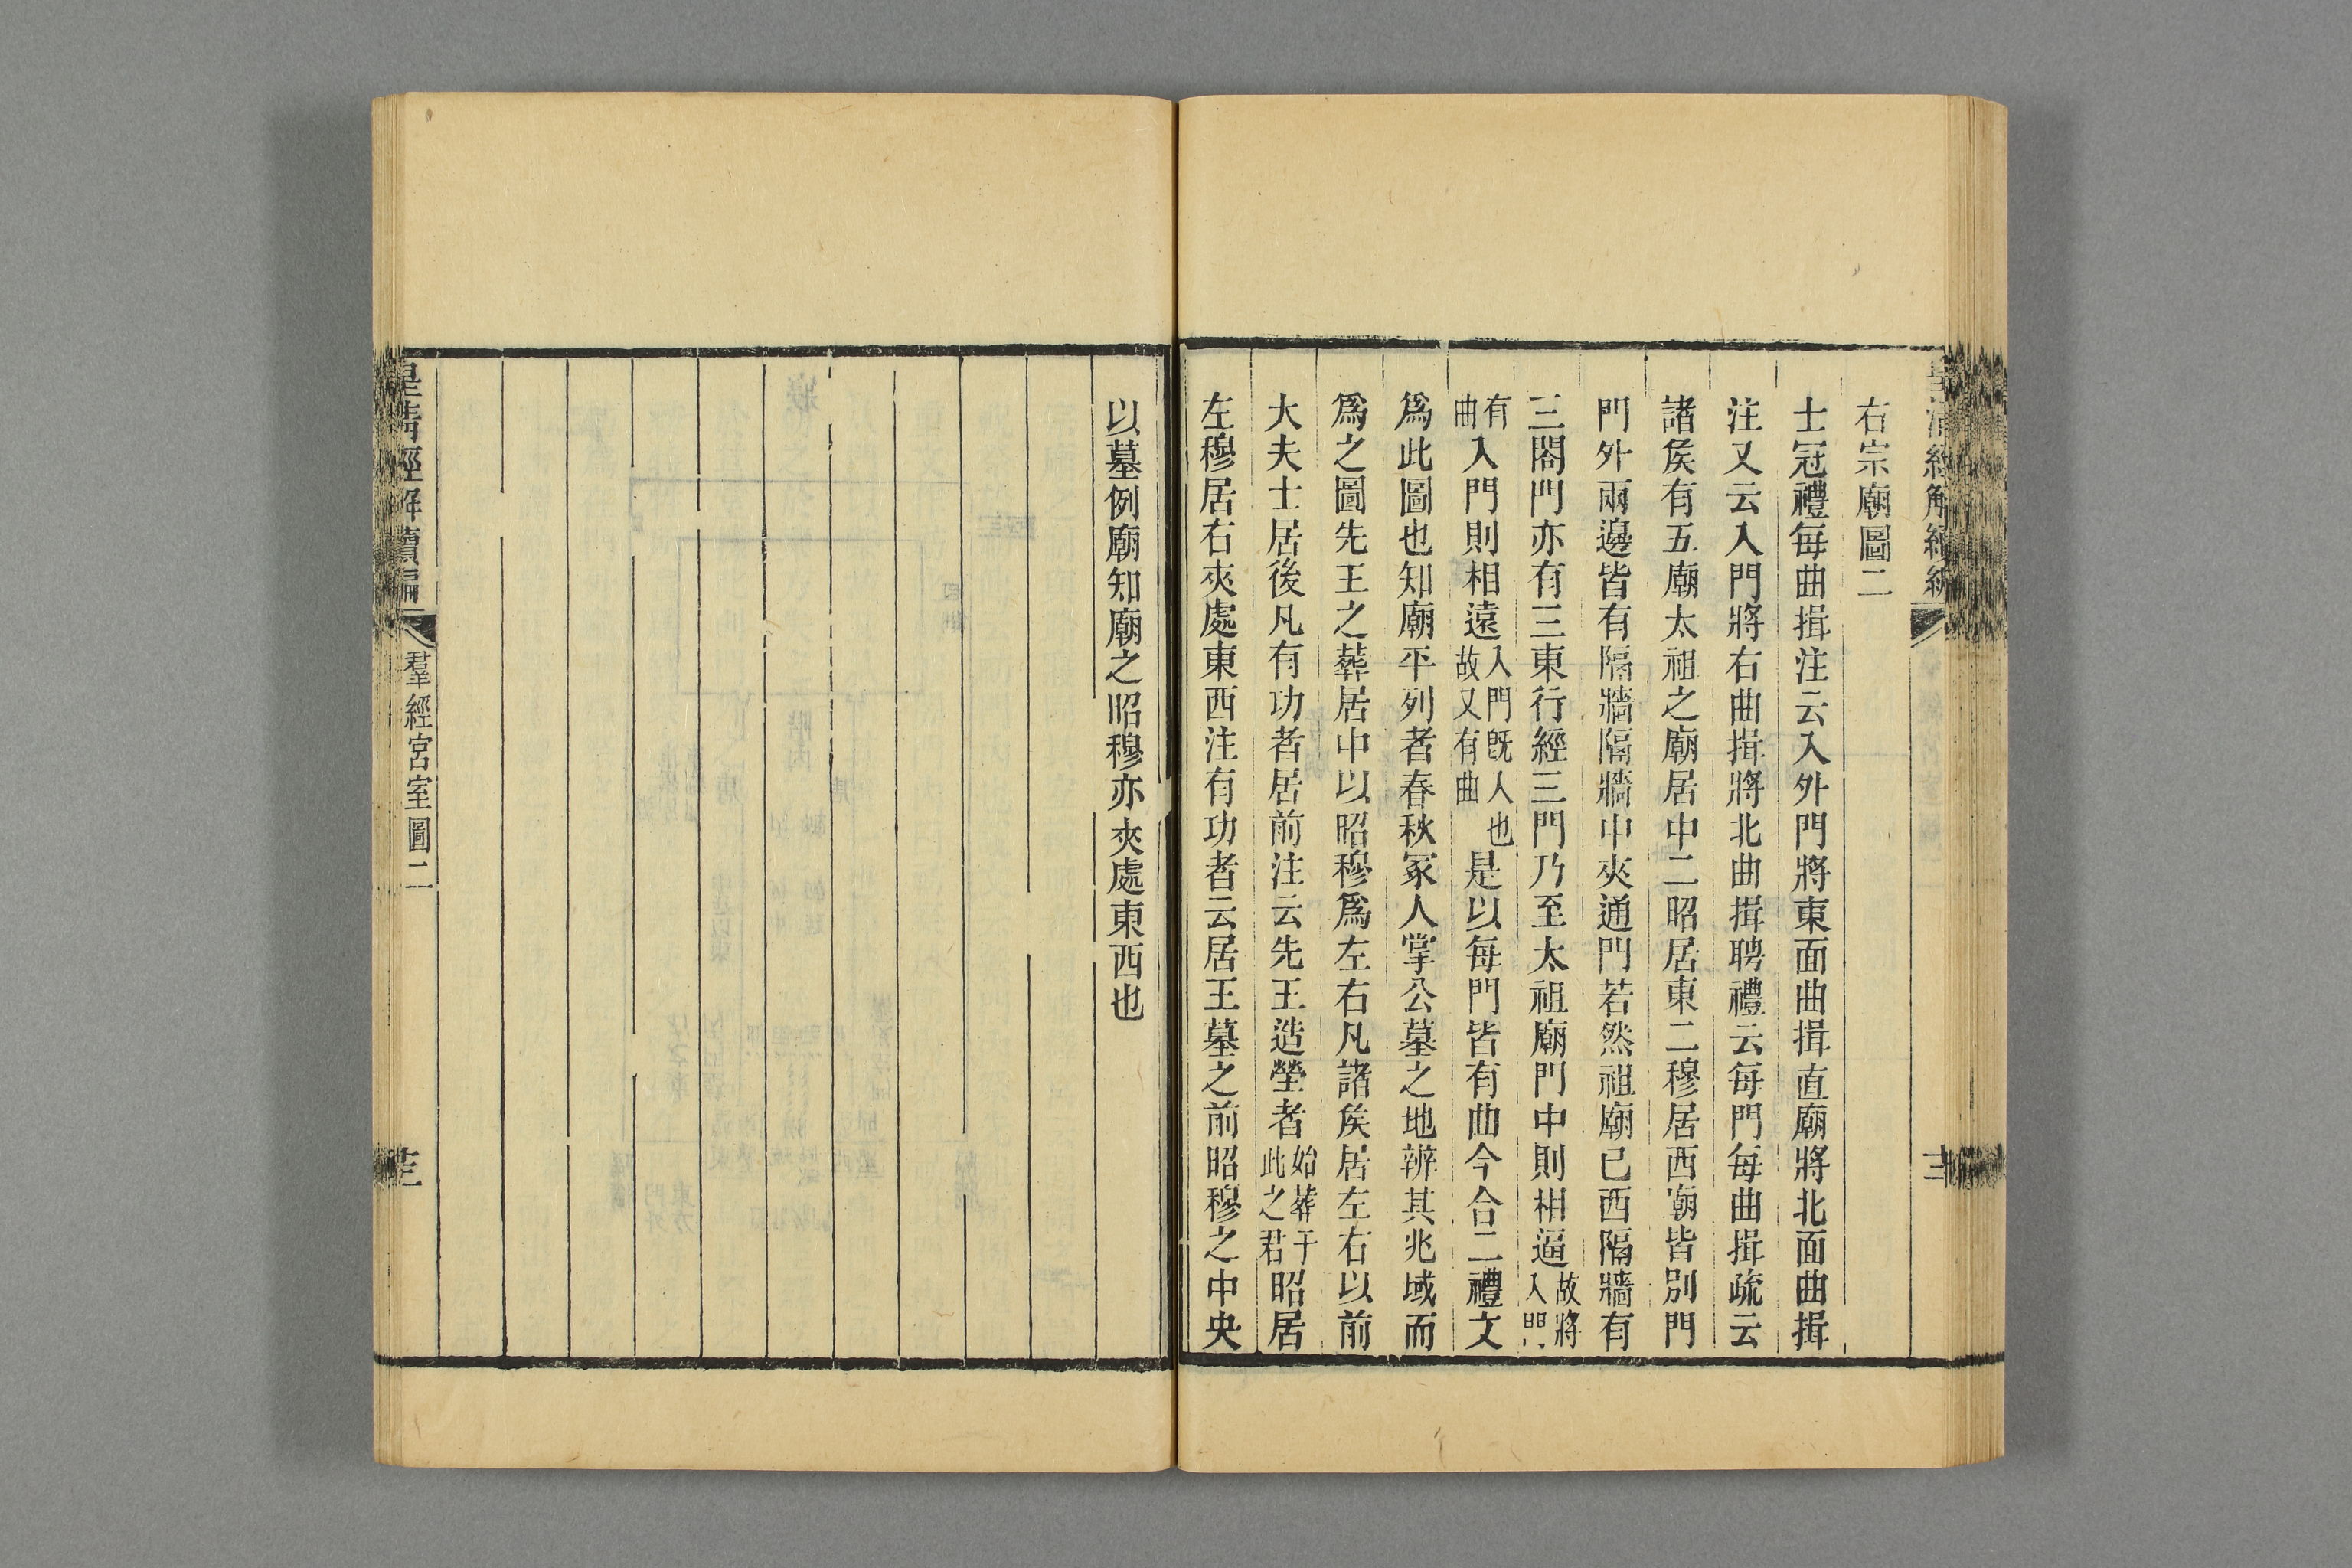 右宗廟圖二
士冠禮每曲揖注云入外門將東面曲揖直廟將北面曲揖
注又云入門將右曲揖將北曲揖聘禮云每門每曲揖疏云
諸矦有五廟太祖之廟居中二昭居東二穆居西廟皆別門
門外兩邊皆有隔牆隔牆中夾通門若然祖廟已西隔牆有
三閤門亦有三東行經三門乃至太祖廟門中則相逼故將入門
有曲入門則相遠入門旣入也故又有曲是以每門皆有曲今合二禮文
爲此圖也知廟平列者春秋冢人掌公墓之地辨其兆域而
爲之圖先王之葬居中以昭穆爲左右凡諸矦居左右以前
大夫士居後凡有功者居前注云先王造塋者始葬于此之君昭居
左穆居右夾處東西注有功者云居王墓之前昭穆之中央
以墓例廟知廟之昭穆亦夾處東西也
皇清經解續編
羣經宮室圖二